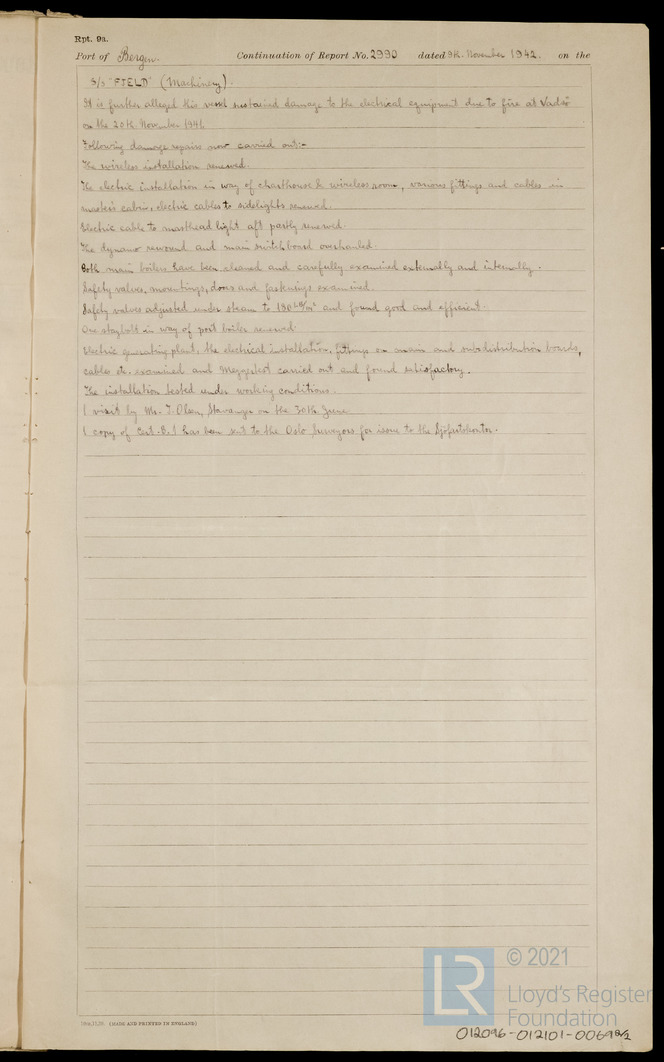 Rpt. 9a.
Port of Bergen. Continuation of Report No. 2990 dated 9th. November 1942. on the
S/S "FJELD" (Machinery).
It is further alleged this vessel sustained damage to the electrical equipment due to fire at Vadsö
on the 20th November 1941.
Following damage repairs now carried out:-
The wireless installation renewed.
The electric installation in way of charthouse & wireless room, various fittings and cables in
master's cabin, electric cables to sidelights renewed.
Electric cable to masthead light aft partly renewed.
The dynamo rewound and main switchboard overhauled.
Both main boilers have been cleaned and carefully examined externally and internally.
Safety valves, mountings, doors and fastenings examined.
Safety valves adjusted under steam to 180 Lb/in² and found good and efficient.
One staybolt in way of port boiler renewed.
Electric generating plant, the electrical installation, fittings on main and subdistribution boards,
cables etc. examined and Meggertest carried out and found satisfactory.
The installation tested under working conditions.
1 visit by Mr. T. Olsen, Stavanger on the 30th June
1 copy of Cert. B.1 has been sent to the Oslo Surveyors for issue to the Sjöfartskontor.
(MADE AND PRINTED IN ENGLAND)
© 2021
LR
Lloyd's Register
Foundation
012096-012101-0069 2/2